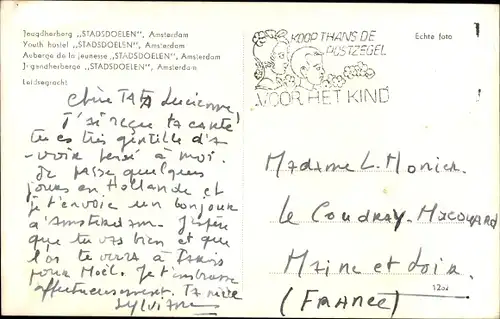 Jeugdherberg „STADSDOELEN", Amsterdam
Youth hostel „STADSDOELEN", Amsterdam
Auberge de la jeunesse „STADSDOELEN", Amsterdam
Jugendherberge „STADSDOELEN", Amsterdam
Leidsegracht
Chère TATA Lucienne!
J'ai reçu ta carte
tu es très gentille d'a
-voir pensé à moi.
Je passe quelques
jours en Hollande et
je t'envoie un bonjour
d'Amsterdam. J'espère
que tu vas bien et que
l'on te verra à Paris
pour Noël. Je t'embrasse
affectueusement. Ta nièce
Sylviane
KOOP THANS DE
POSTZEGEL
VOOR HET KIND
Echte foto
Madame L. Monier
Le Coudray-Macouard
Maine et Loire
1202
(FRANCE)